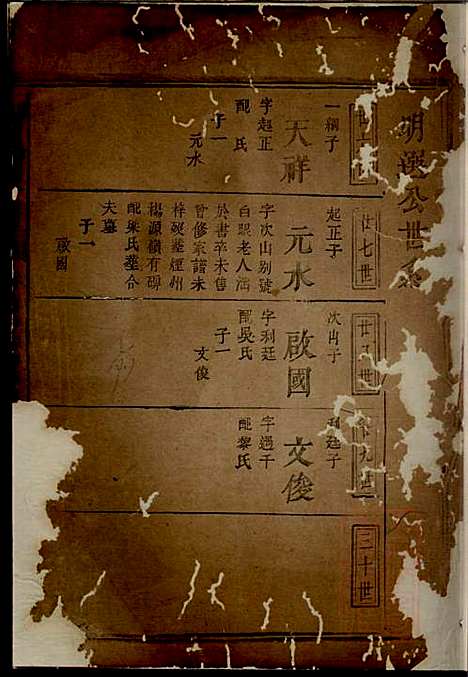 明漢公世系
廿六世
一綱子
天祥
字起正
配氏
子一
元水
廿七世
起正子
元水
字次山別號
白眼老人涵
於書卒未售
曾修家譜未
梓殁葬烴州
楊源嶺有碑
配梁氏葬合
夫墓
子一
啟國
廿八世
次山子
啟國
字利廷
配吳氏
子一
文俊
廿九世
利廷子
文俊
字遇千
配黎氏
三十世